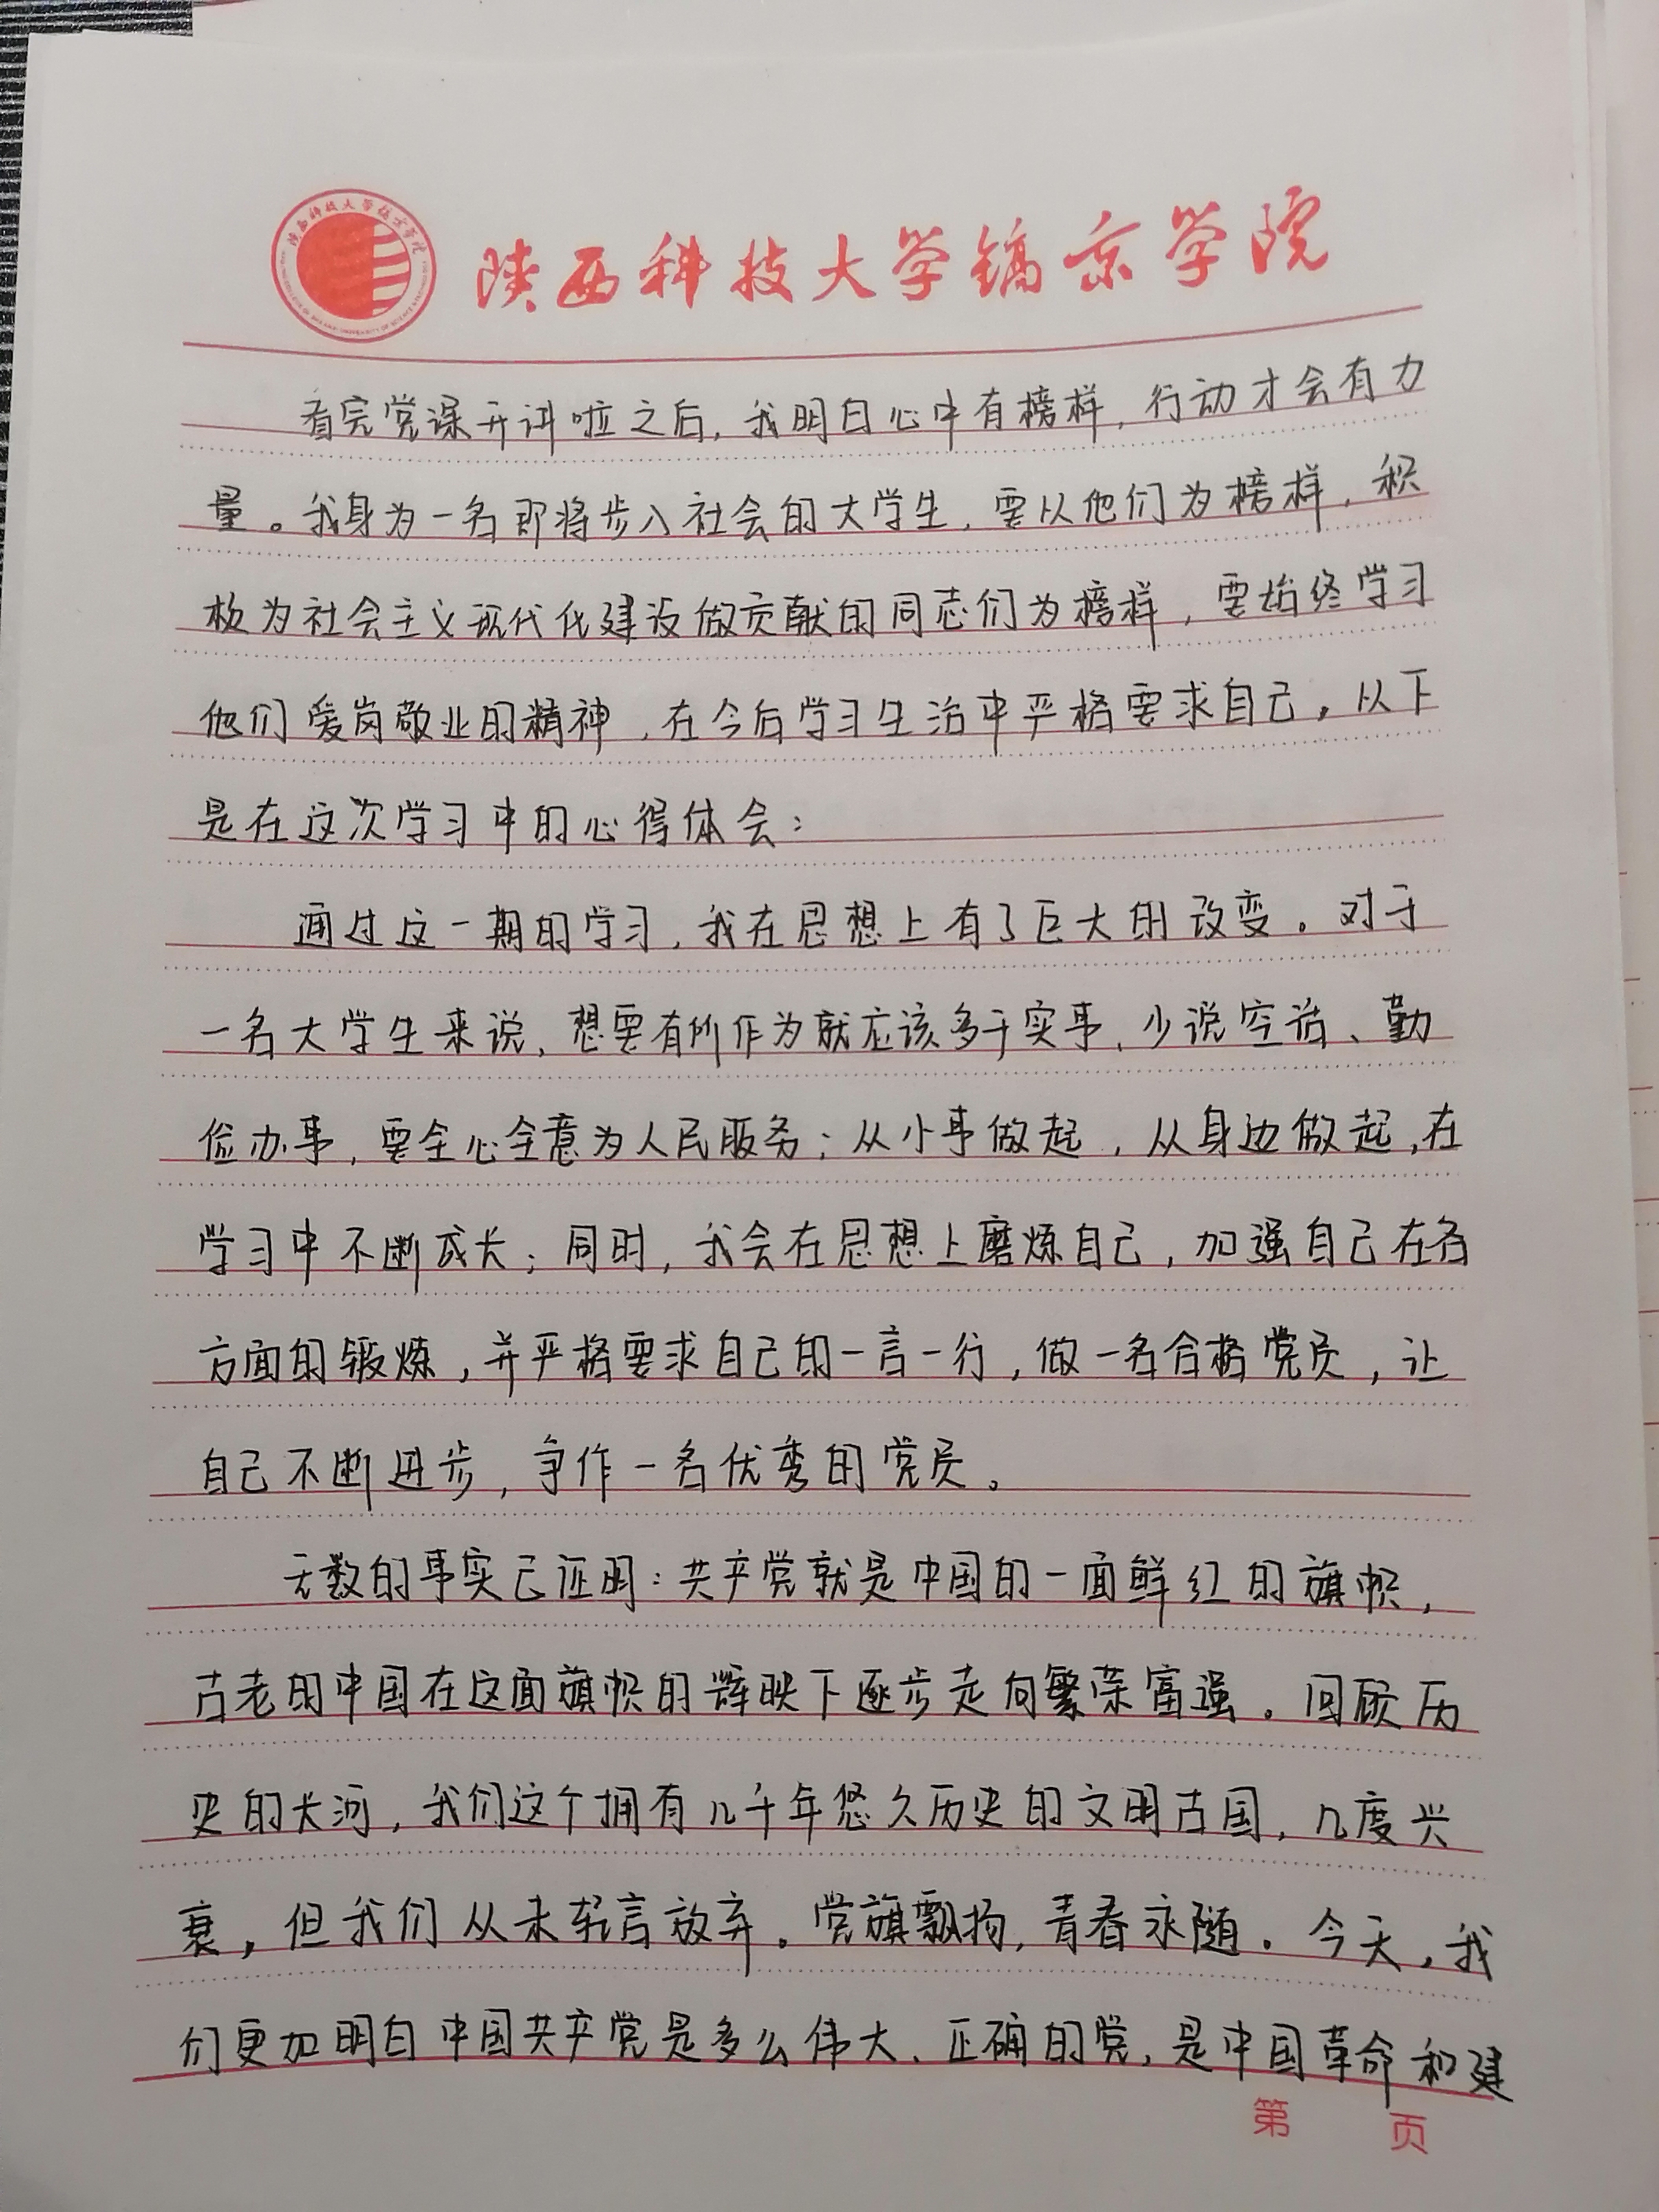 陕西科技大学镐京学院
看完党课开讲啦之后,我明白心中有榜样,行动才会有力
量。我身为一名即将步入社会的大学生,要以他们为榜样,积
极为社会主义现代化建设做贡献的同志们为榜样,要始终学习
他们爱岗敬业的精神,在今后学习生活中严格要求自己。以下
是在这次学习中的心得体会:
通过这一期的学习,我在思想上有了巨大的改变。对于
一名大学生来说,想要有所作为就应该多干实事、少说空话、勤
俭办事,要全心全意为人民服务;从小事做起,从身边做起,在
学习中不断成长;同时,我会在思想上磨炼自己,加强自己在各
方面的锻炼,并严格要求自己的一言一行,做一名合格党员,让
自己不断进步,争作一名优秀的党员。
无数的事实已证明:共产党就是中国的一面鲜红的旗帜,
古老的中国在这面旗帜的辉映下逐步走向繁荣富强。回顾历
史的长河,我们这个拥有几千年悠久历史的文明古国,几度兴
衰,但我们从未轻言放弃。党旗飘扬,青春永随。今天,我
们更加明白中国共产党是多么伟大、正确的党,是中国革命和建
第 页